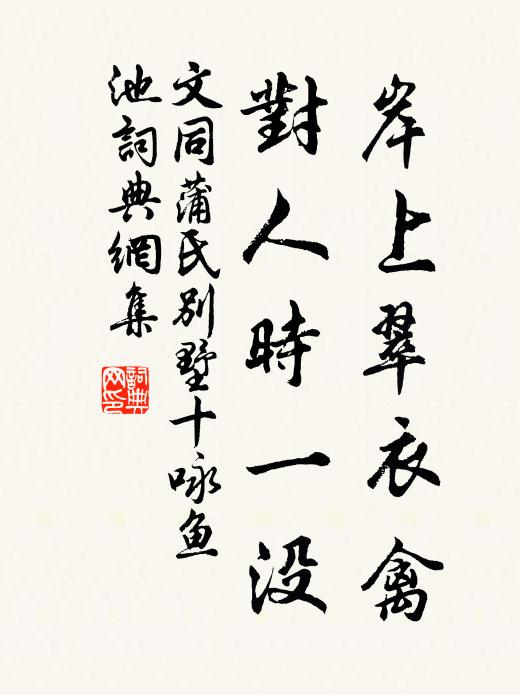 岸上翠衣禽
對人時一没
文同蒲氏別墅十咏魚
池詞典網集
詞典
网印